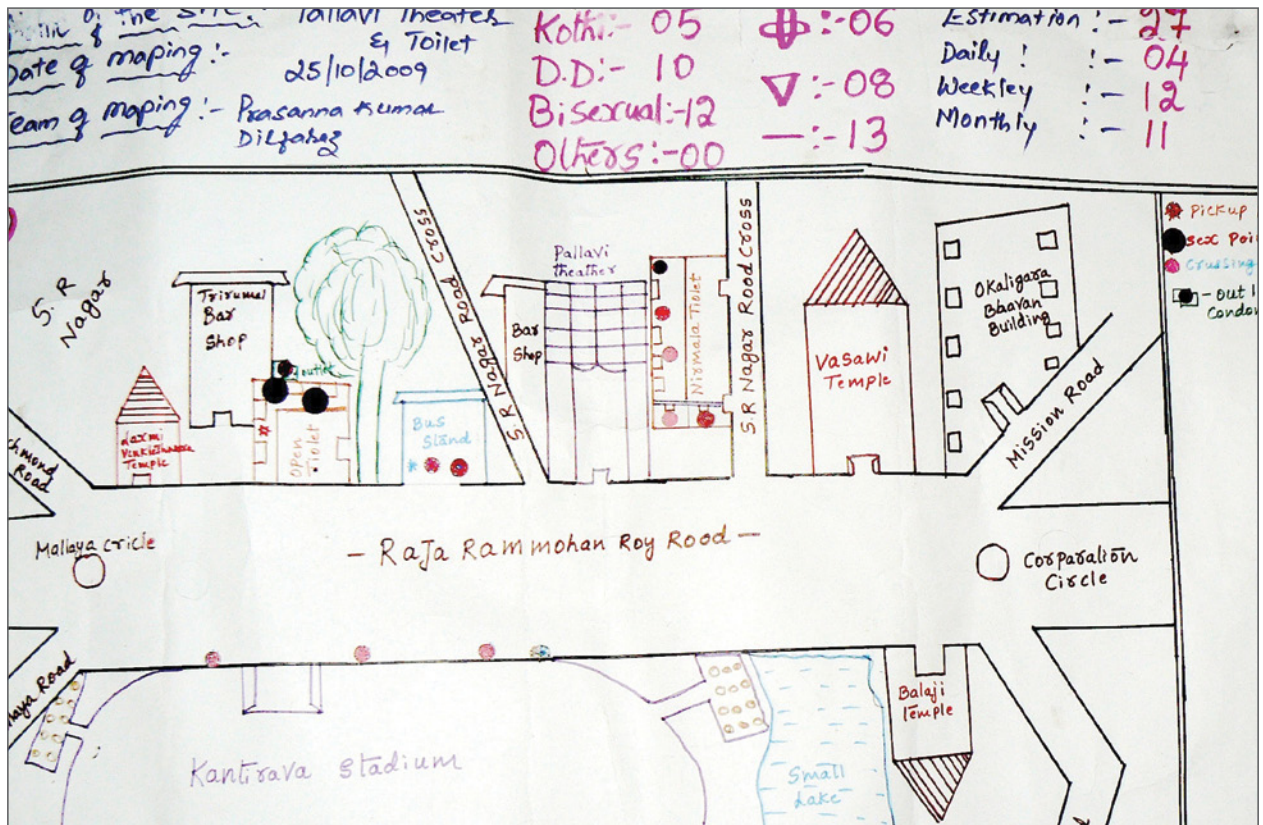 of the Site :-
Pallavi Theater
& Toilet
Date of maping :-
25/10/2009
Team of maping :- Prasanna Kumar
Kothi:- 05
D.D:- 10
Bisexual:-12
Others:-00
:-06
:-08
—:-13
Estimation :- 27
Daily : :- 04
Weekley :- 12
Monthly :- 11
Pickup
Sex Poi
Crussing
-out l
Condon
S. R
Nagar
Trirumal
Bar
Shop
outlet
Laxmi
Temple
Open
Tiolet
Bus
Stand
S.R Nagar Road Cross
Bar
Shop
Pallavi
theather
Nirmala Tiolet
S.R Nagar Rood Cross
Vasawi
Temple
Okaligara
Bhavan
Building
Mission Road
chmond
Road
Mallaya cricle
- Raja Rammohan Roy Rood -
Corparation
Circle
laya Road
Kantirava Stadium
Small
Lake
Balaji
Temple